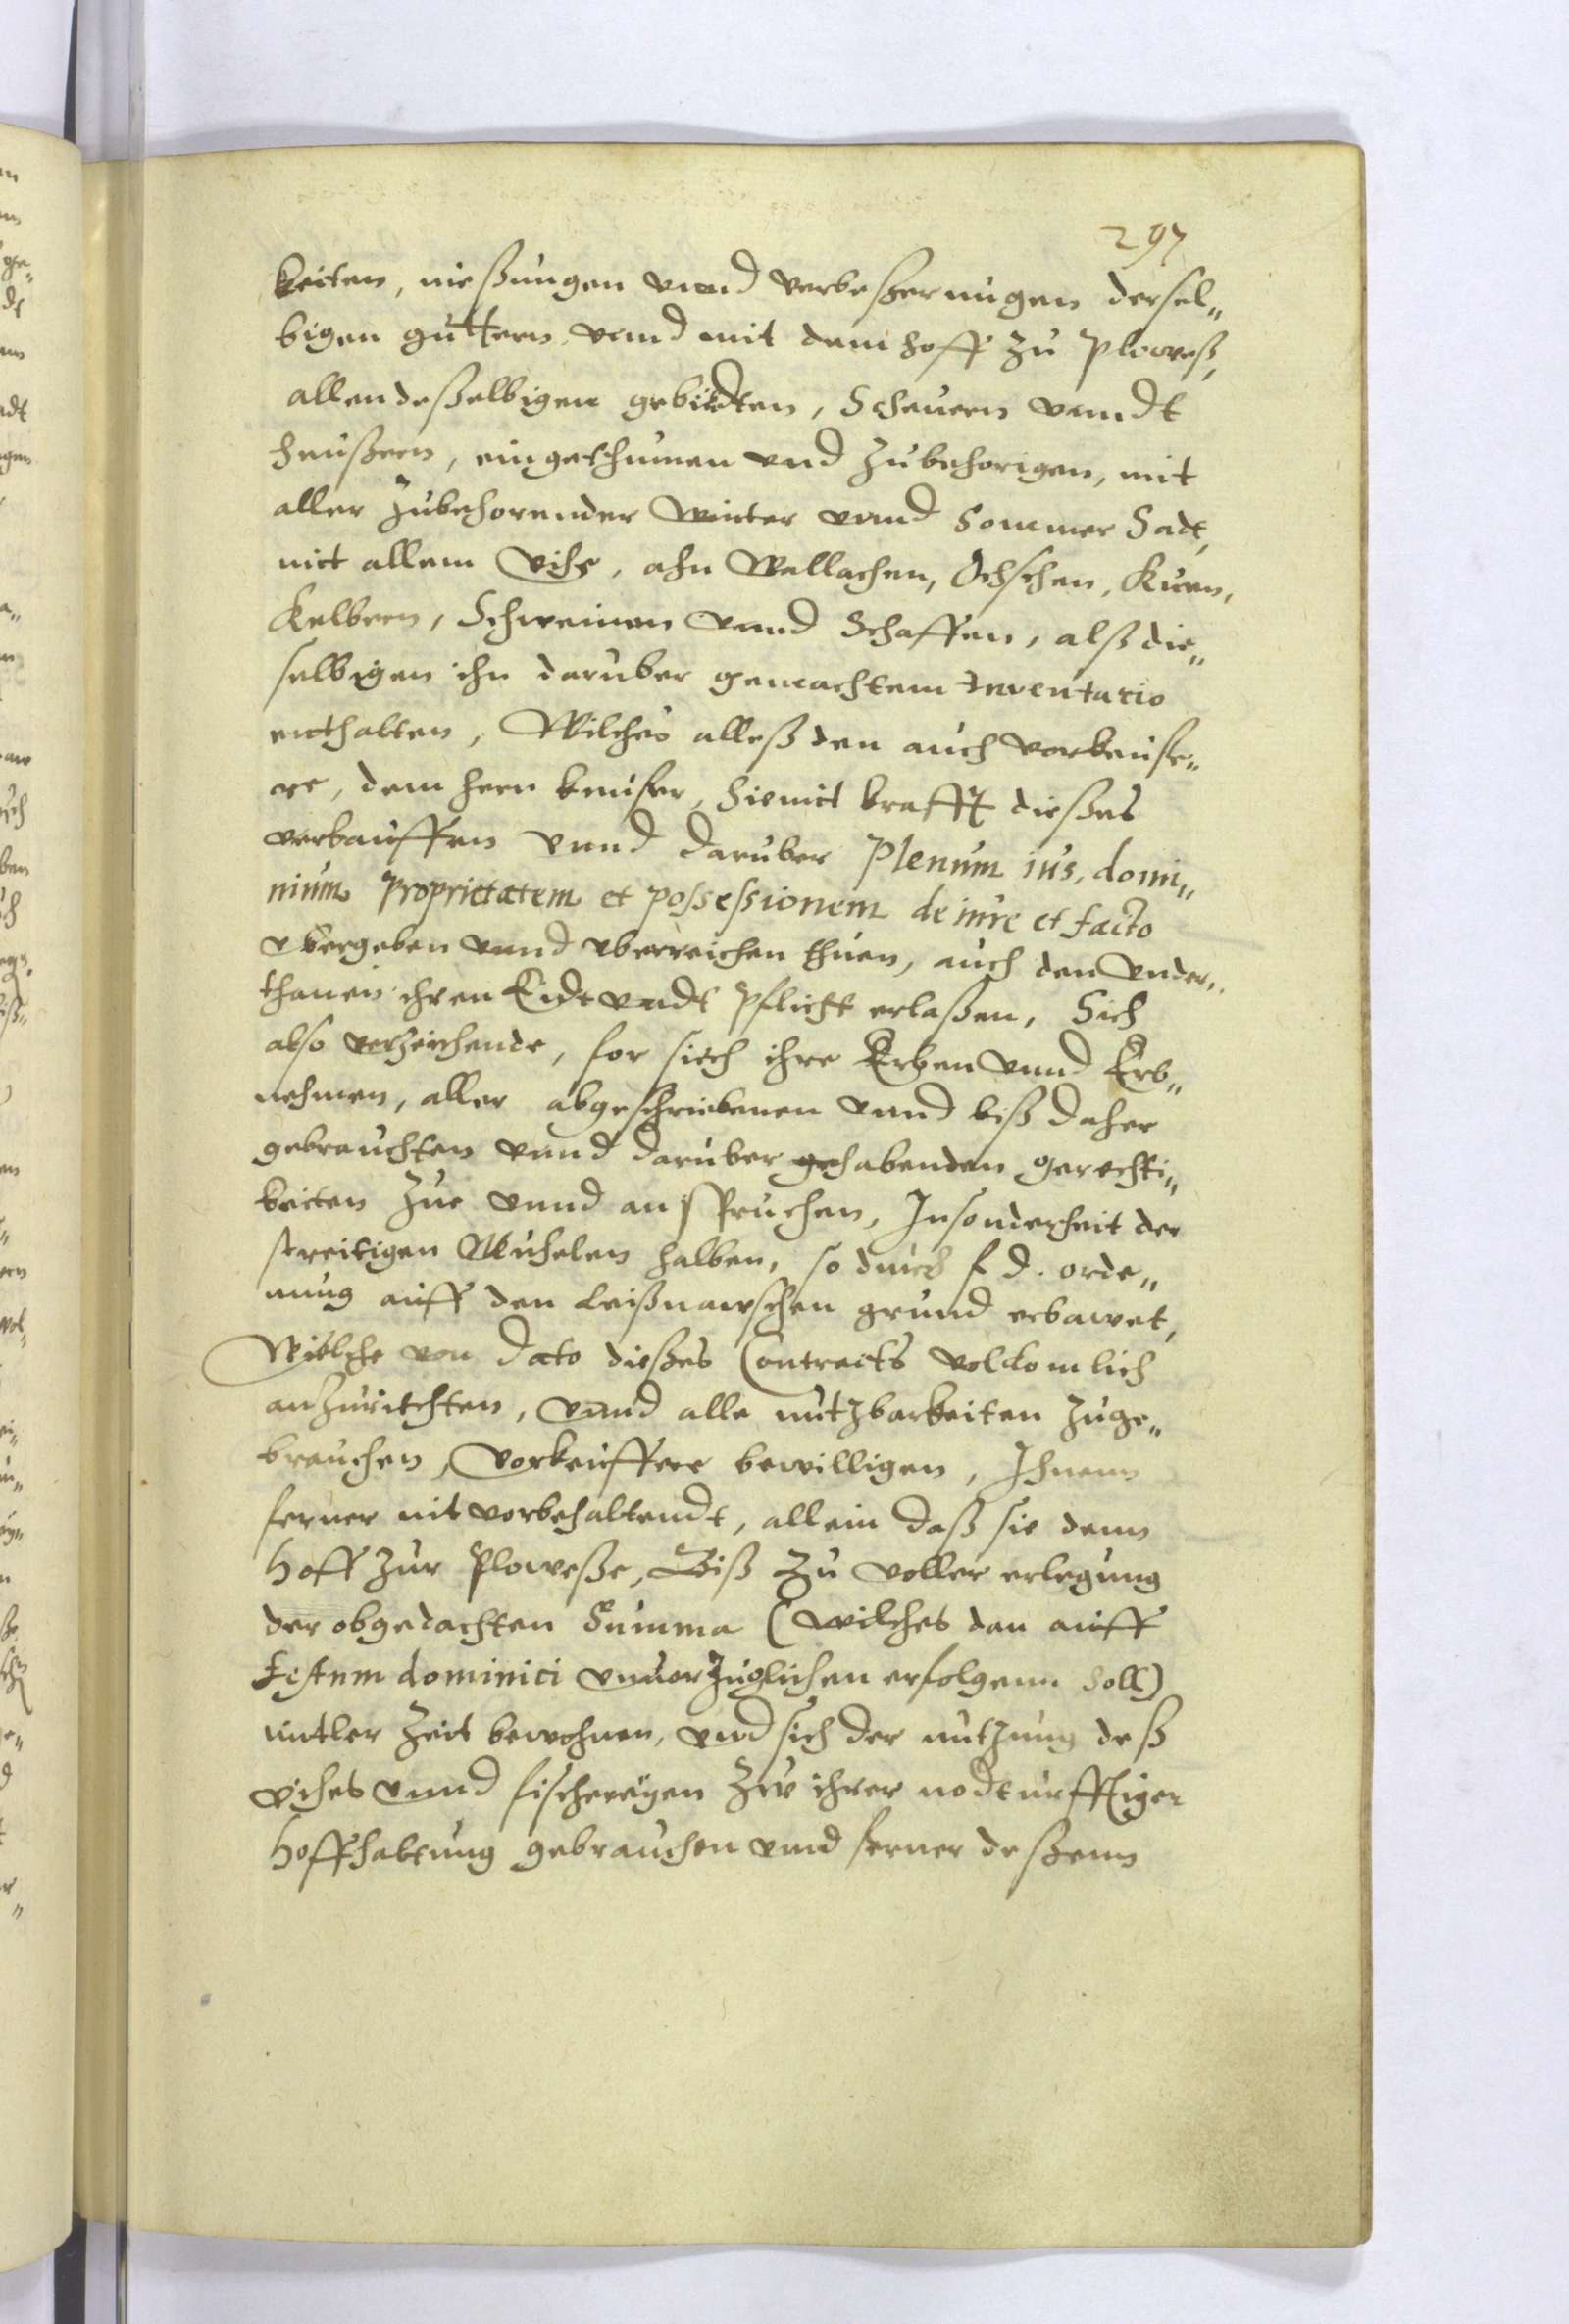 297
keiten, nießungen vnnd verbeßerungen dersel„
bigen guttern vnnd mit dem hoff zu Ploweß,
allen deßelbigen gebieten, Scheuern vnndt
heußern, eingethumen vnd zubehorigen, mit
aller zubehorender Winter vnnd Sommer Sadt,
mit allem Vihe, ahn Wallachen, Ochschen, Kuen,
Kelbern, Schweinen vnnd Schaffen, alß die„
selbigen ihn daruber gemachtem Inventario
enthalten, Wilches alleß den auch vorkeuffe„
re, dem hern keuffer, hiemit krafft dießes
verkauffen vnnd daruber Plenum ius, domi„
nium proprietatem et possessionem de iure et facto
vbergeben vnnd vberreichen thuen, auch den vnder„
thanen ihren Eidt vndt Pflicht erlaßen, Sich
also verzeichende, for siech ihre Erben vnnd Erb„
nehmen, aller abgeschriebenen vnnd biß daher
gebrauchten vnnd daruber habenden gerechti„
keiten zue vnnd anspruchen, Insonderheit der
streitigen Muhelen halben, so durch f d. orde„
nung auff den Leißnawschen grund erbawet,
Wilche von dato dießes Contracts volkomlich
anzurichten, vnnd alle nutzbarkeiten zuge„
brauchen, Vorkeuffere bewilligen, Ihnenn
ferner nit vorbehaltendt, allein daß sie denn
hoff zur Ploweße, Biß zu voller erlegung
der obgedachten Summa (wilches dan auff
festum dominici vnuorzuglichen erfolgenn soll)
mitler zeit bewohnen, vnd sich der nutzung deß
vihes vnnd fischereyen zw ihrer nodturfftiger
hoffhaltung gebrauchen vnnd ferner deßenn